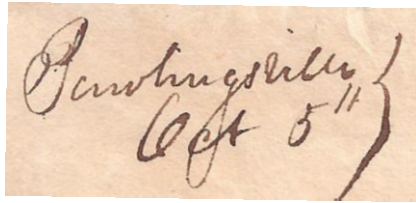 Pawlingsville
Oct 5"